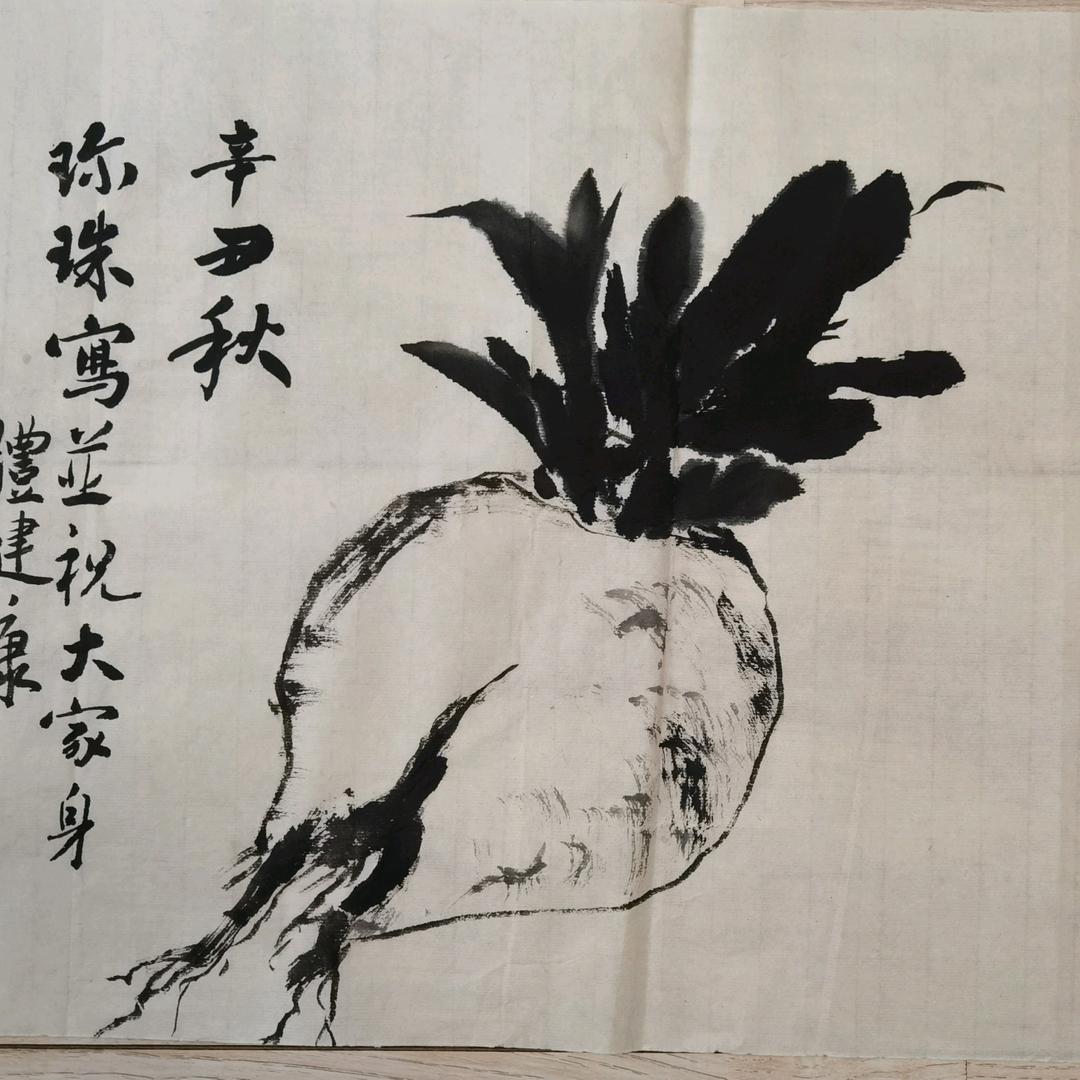 辛丑秋
珎珠寫並祝大家身
體建康